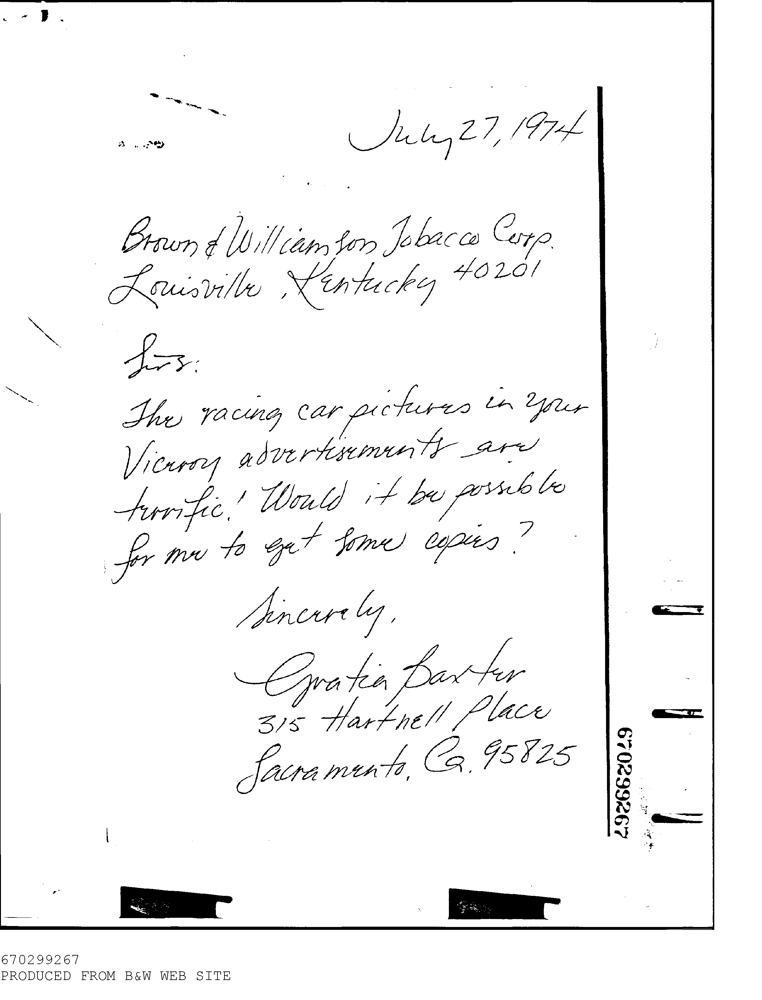 July 27, 1974
Brown & Williamson Tobacco Corp.
Louisville, Kentucky 40201
Sirs:
The racing car pictures in your
Viceroy advertisements are
terrific! Would it be possible
for me to get some copies?
Sincerely,
Gratia Baxter
315 Hartnell Place
Sacramento, Ca. 95825
670299267
670299267
PRODUCED FROM B&W WEB SITE